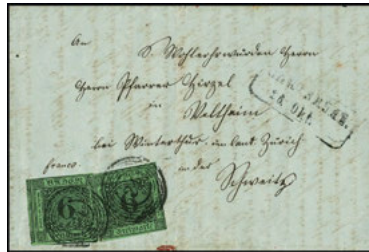 An
S. Wohlehrwürden Herrn
Herrn Pfarrer Hirzel
in
Veltheim
bei Winterthur. im Cant. Zürich
franco.
in der
Schweitz
26 Okt.
BADEN
6
BADEN
6